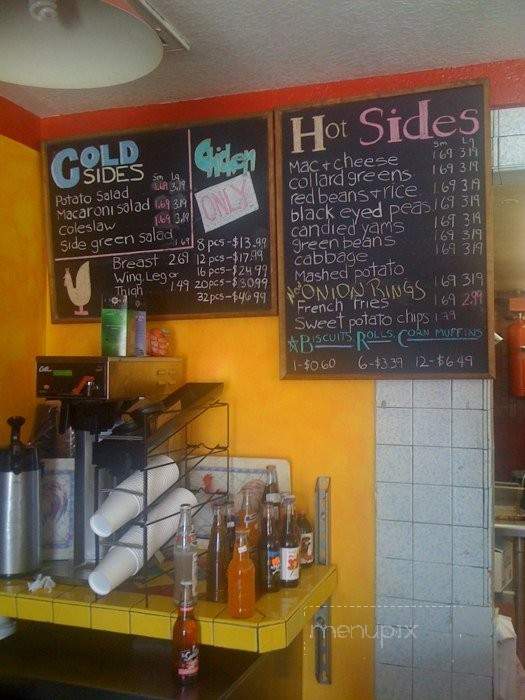 COLD
SIDES
Sm Lg
Potato Salad 1.69 3.19
Macaroni salad 1.69 3.19
coleslaw 1.69 3.19
Side green salad 1.69
Chicken
ONLY!
8 pcs - $13.99
12 pcs - $17.99
16 pcs - $24.99
20 pcs - $30.99
32 pcs - $46.99
Breast 2.69
Wing, Leg or
Thigh 1.49
Hot Sides
Sm Lg
Mac & cheese 1.69 3.19
collard greens 1.69 3.19
red beans & rice 1.69 3.19
black eyed peas 1.69 3.19
candied yams 1.69 3.19
green beans 1.69 3.19
cabbage 1.69 3.19
Mashed potato
New ONION RINGS 1.69 3.19
French Fries 1.69 2.99
Sweet potato chips 1.79
Biscuits, Rolls, Corn Muffins
1-$0.60 6-$3.39 12-$6.49
menupix